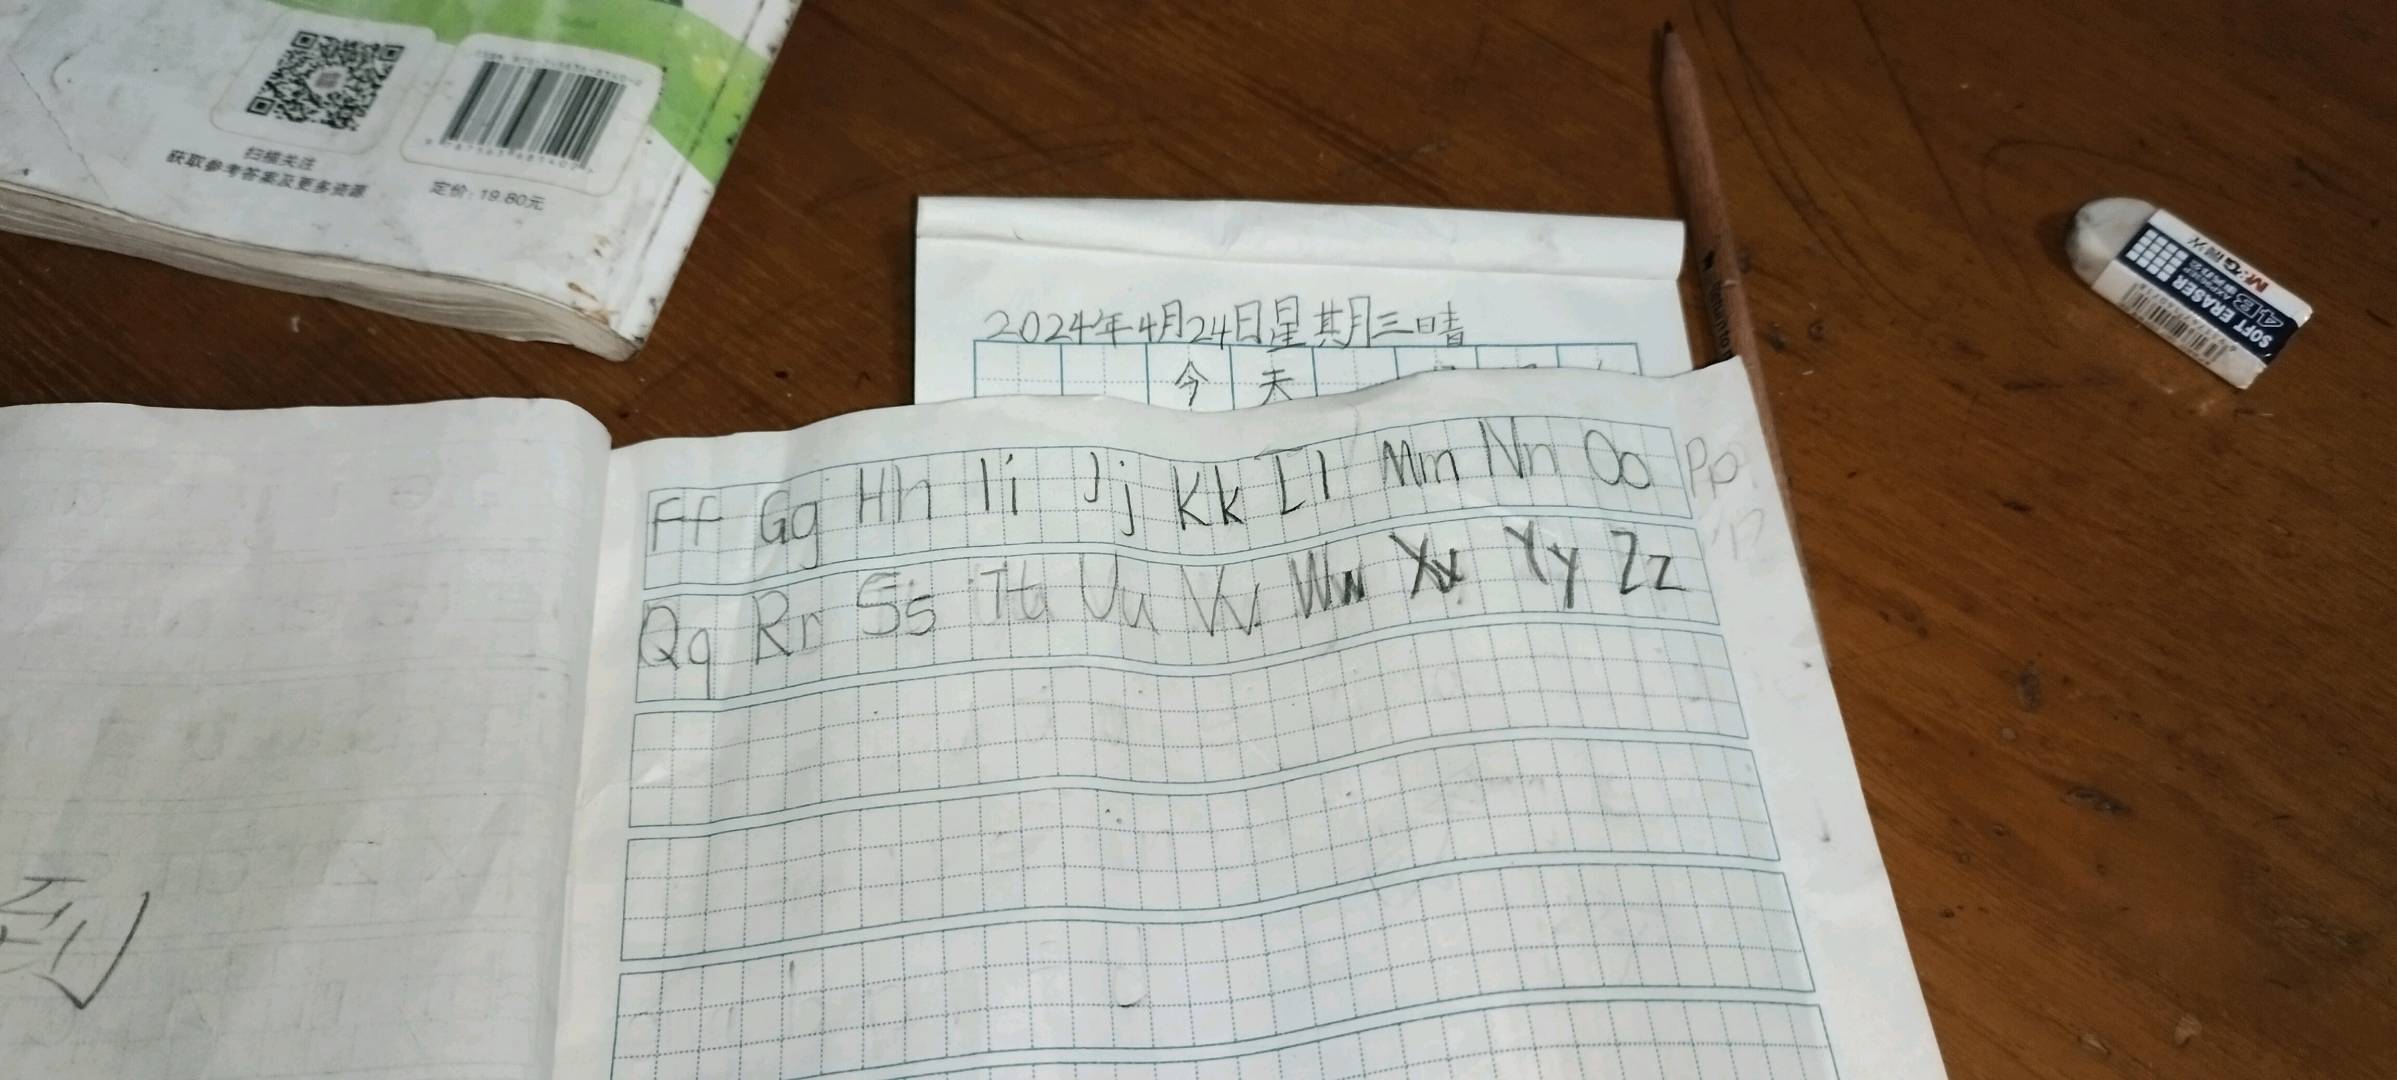 扫描关注
获取参考答案及更多资源
定价: 19.80元
2024年4月24日星期三晴
今天
Ff Gg Hh Ii Jj Kk Ll Mm Nn Oo Pp
Qq Rr Ss Tt Uu Vv Ww Xx Yy Zz
M&G 晨光
4B
SOFT ERASER